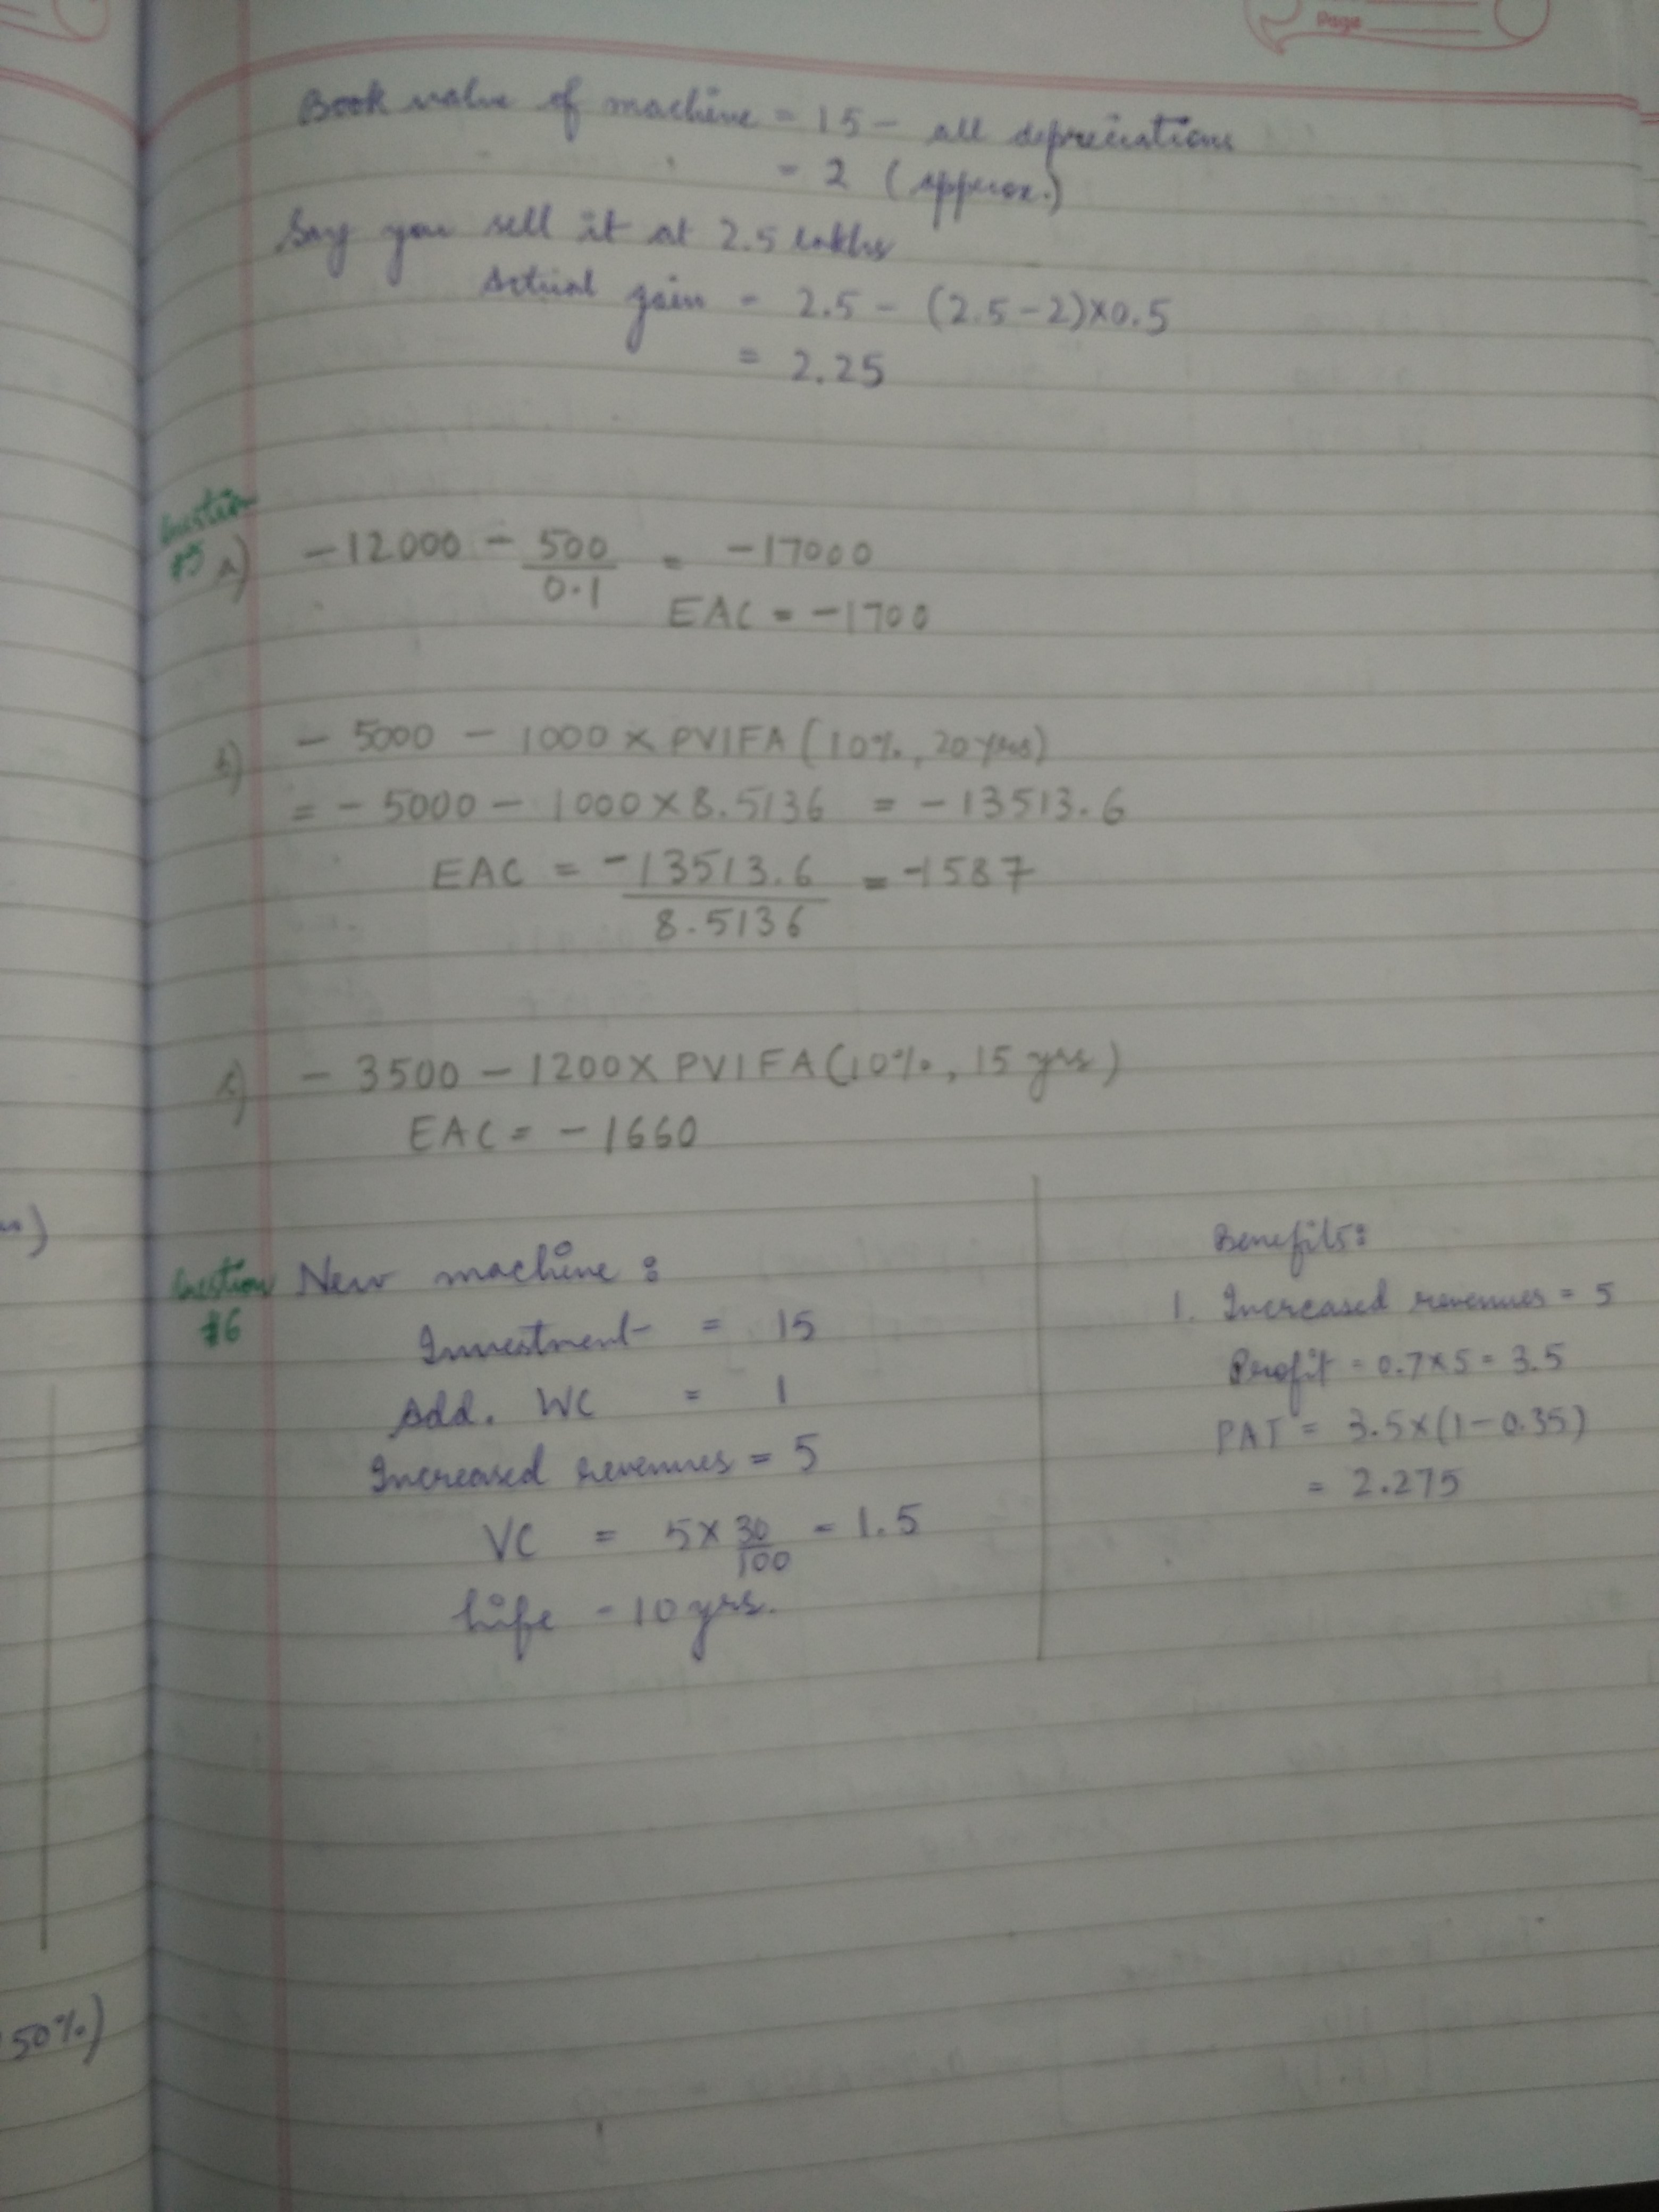 Page
Book value of machine = 15 - all depreciations
= 2 (approx.)
Say you sell it at 2.5 lakhs
Actual gain = 2.5 - (2.5-2)×0.5
= 2.25
Question
#5 a) -12000 - 500/0.1 = -17000
EAC = -1700
b) - 5000 - 1000 × PVIFA (10%, 20 yrs)
= - 5000 - 1000 × 8.5136 = - 13513.6
EAC = -13513.6/8.5136 = -1587
c) - 3500 - 1200 × PVIFA (10%, 15 yrs)
EAC = - 1660
Question #6
New machine :
Investment = 15
Add. WC = 1
Increased revenues = 5
VC = 5 × 30/100 = 1.5
Life = 10 yrs.
Benefits:
1. Increased revenues = 5
Profit = 0.7×5 = 3.5
PAT = 3.5×(1-0.35)
= 2.275
50%)